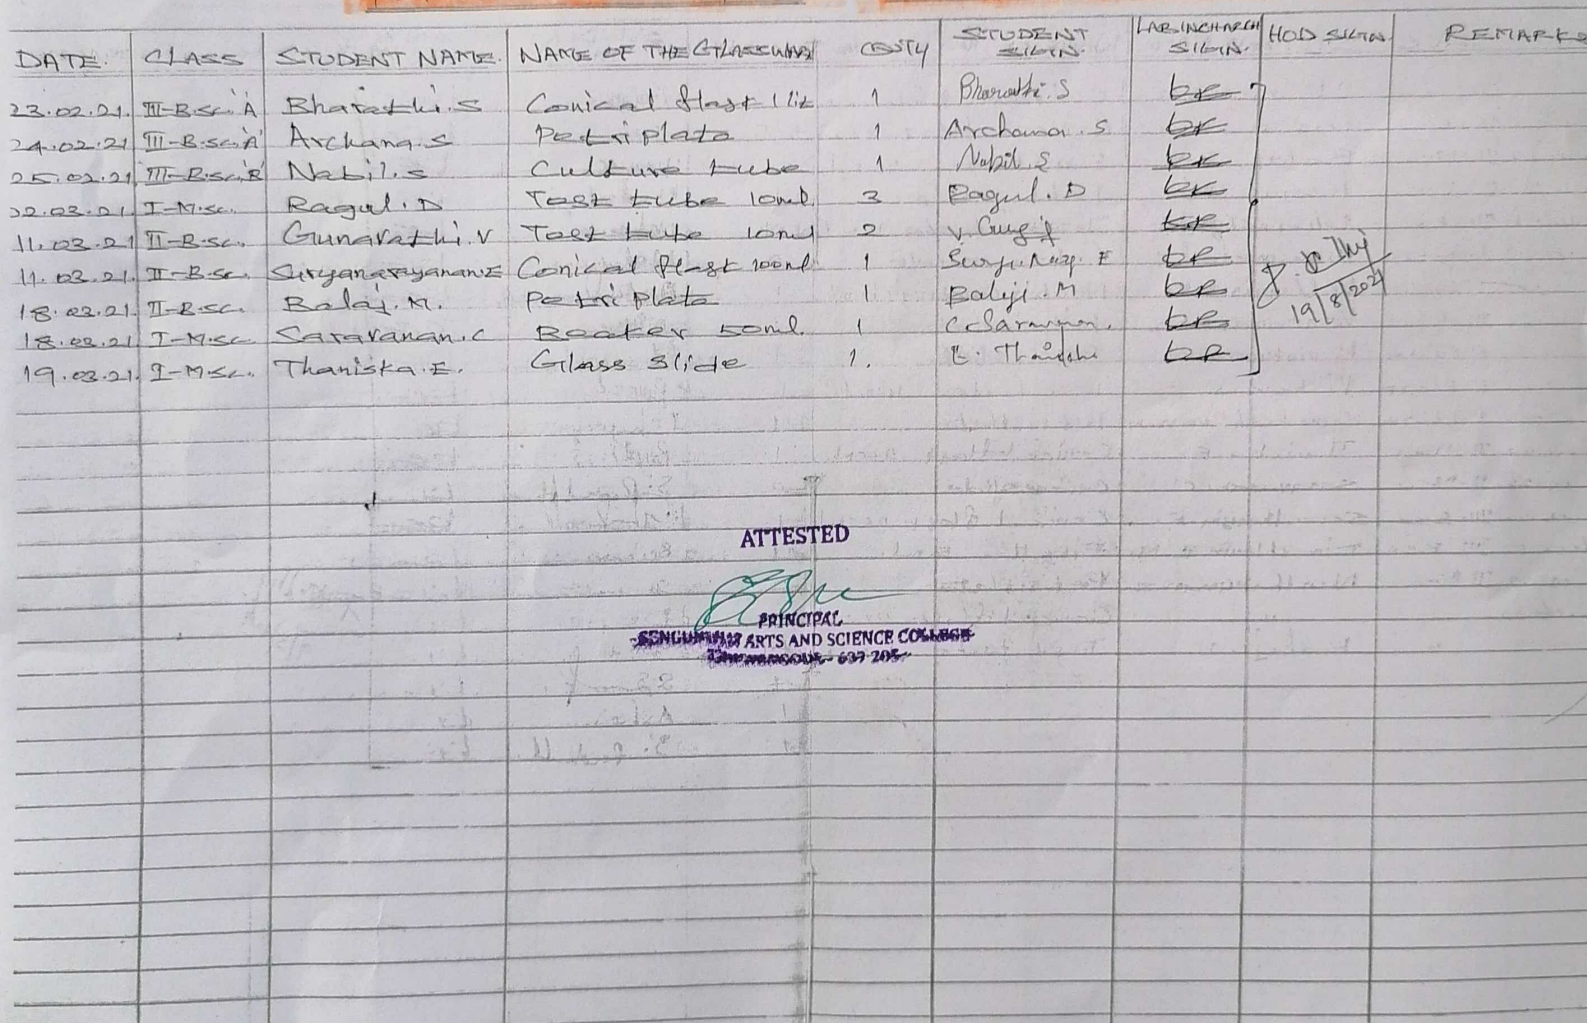 DATE. CLASS STUDENT NAME. NAME OF THE GLASSWARE QUTY STUDENT SIGN. LAB INCHARGE SIGN. HOD SIGN. REMARKS
23.02.21. III-B.Sc. 'A' Bharathi.S Conical flast 1 lit 1 Bharathi.S
24.02.21 III-B.Sc. 'A' Archana.S Petri plate 1 Archana.S
25.02.21 III-B.Sc. 'B' Nabil.S Culture tube 1 Nabil.S
02.03.21. I-M.Sc. Ragul.D Test tube 10ml. 3 Ragul.D
11.03.21 II-B.Sc. Gunavathi.V Test tube 10ml 2
11.03.21. II-B.Sc. Suryanarayanan.E Conical flast 100ml. 1
18.03.21. II-B.Sc. Balaj.M. Petri plate 1 Balaji.M
18.03.21 I-M.Sc. Saravanan.C Beaker 50ml. 1 C. Saravanan.
19.03.21. I-M.Sc. Thaniska.E. Glass slide 1.
19/8/2021
ATTESTED
PRINCIPAL
SENGUNTHAR ARTS AND SCIENCE COLLEGE
TIRUCHENGODE - 637 205